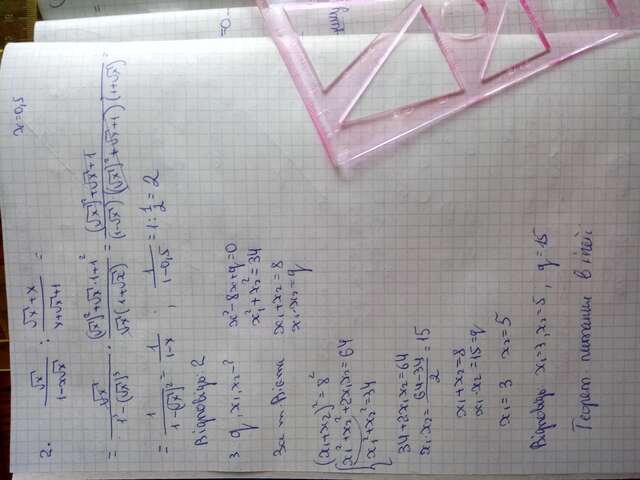 x=0,5
2. √x / (1-x√x) : (√x+x) / (x+√x+1) =
= √x / (1³-(√x)³) · ((√x)²+√x·1+1²) / (√x(1+√x)) = ((√x)²+√x+1) / ((1-√x)((√x)²+√x+1)(1+√x)) =
= 1 / (1-(√x)²) = 1 / (1-x) ; 1 / (1-0,5) = 1 : 1/2 = 2
Відповідь: 2
3. q, x₁, x₂ -? x²-8x+q=0
x₁²+x₂²=34
За т. Вієта x₁+x₂=8
x₁·x₂=q
(x₁+x₂)²=8²
x₁²+x₂²+2x₁x₂=64
x₁²+x₂²=34
34+2x₁x₂=64
x₁·x₂= (64-34)/2 =15
x₁+x₂=8
x₁·x₂=15=q
x₁=3 x₂=5
Відповідь x₁=3, x₂=5, q=15
Теорет. питання в
=0